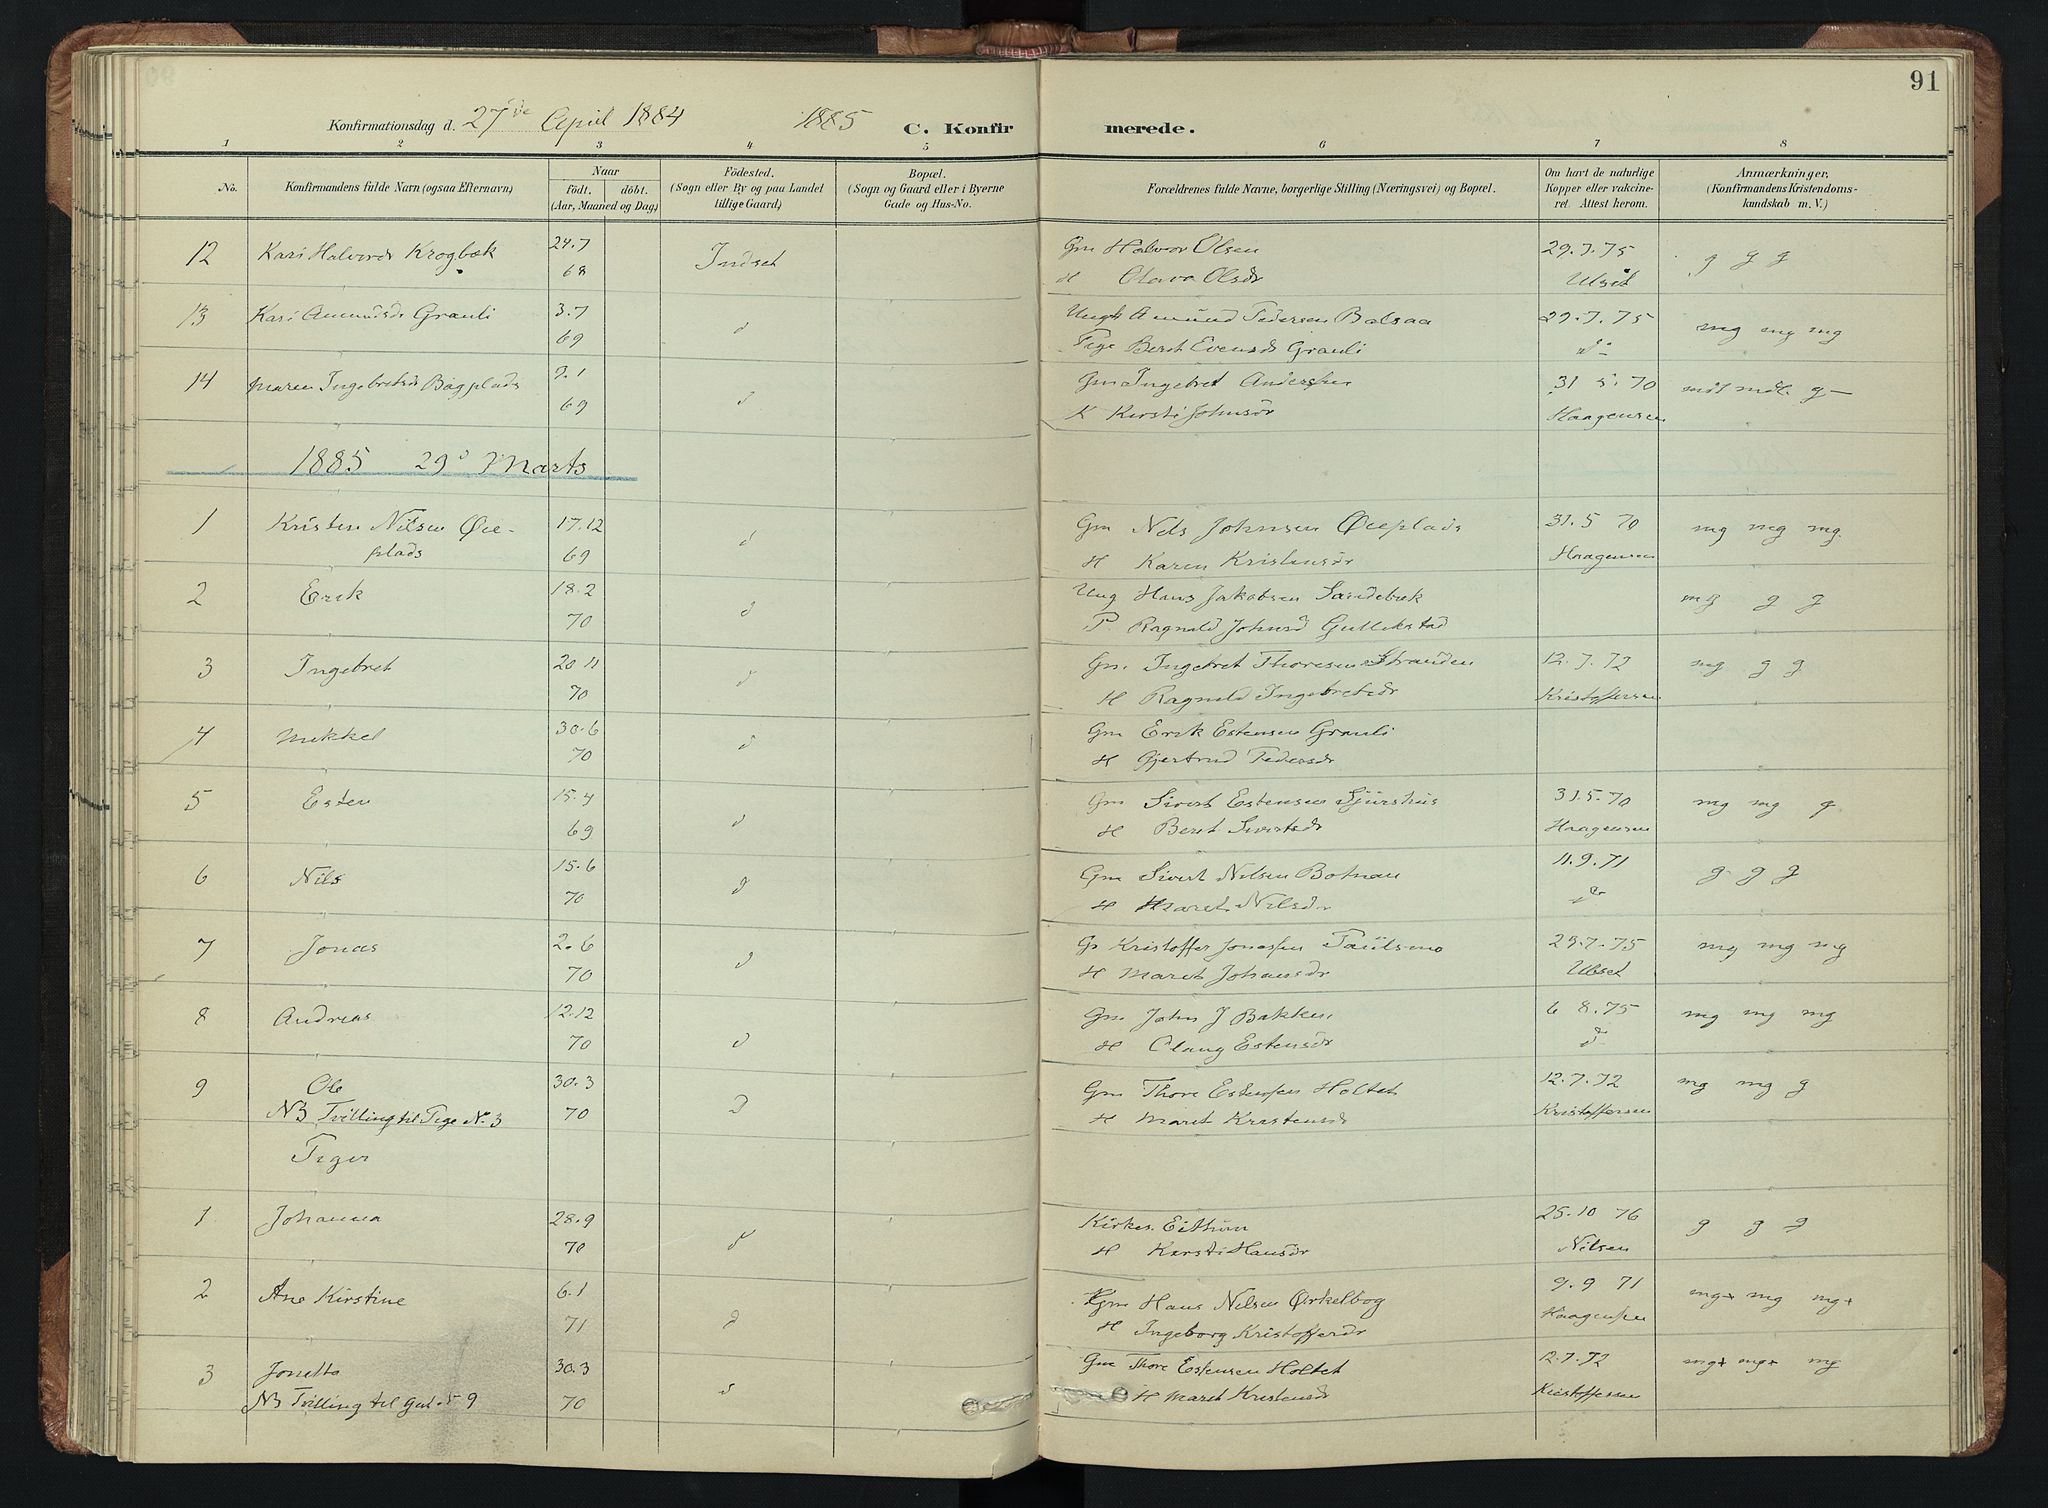 91
Konfirmationsdag d. 27de April 1884 1885 C. Konfirmerede.
1 2 3 4 5 6 7 8
No. Konfirmandens fulde Navn (ogsaa Efternavn) Naar födt. döbt. (Aar, Maaned og Dag) Födested. (Sogn eller By og paa Landet tillige Gaard) Bopæl. (Sogn og Gaard eller i Byerne Gade og Hus-No. Forældrenes fulde Navne, borgerlige Stilling (Næringsvei) og Bopæl. Om havt de naturlige Kopper eller vakcineret. Attest herom. Anmærkninger. (Konfirmandens Kristendomskundskab m. V.)
12 Kari Halvorsdr Krogbæk 24.7 Indset Gm Halvor Olsen 29.7.75 g g g
68 H Olava Olsdr Ulset
13 Kari Amundsdr Grauli 3.7 d Ungk Amund Pedersen Balsaa 29.7.75 mg mg mg
69 Pige Beret Evensdr Grauli do
14 Maren Ingebretsdr Bagplads 9.1 d Gm Ingebret Anderssen 31 5.70 mdl mdl. g
69 K Kirsti Johnsdr Haagensen
1885 29d Marts
1 Kristen Nilsen Øieplads 17.12 d Gm Nels Johnsen Øieplads 31.5 70 mg mg mg.
69 H Karen Kristensdr Haagensen
2 Erik 18.2 d Ung Hans Jakobsen Sandebæk mg g g
70 P. Ragnild Johnsd Gullikstad
3 Ingebret 20 11 d Gm. Ingebret Thoresen Stranden 12.7.72 mg g g
70 H Ragnild Ingebretsdr Kristoffersen
4 Mikkel 30.6 d Gm Erik Estensen Grauli
70 H Gjertrud Pedersdr
5 Esten 15.4 d Gm Sivert Estensen Sjurshus 31.5.70 mg mg g
69 H Beret Sivertsdr Haagensen
6 Nils 15.6 d Gm Sivert Nilsen Botnan 11.9.71 g g g
70 H Maret Nilsdr do
7 Jonas 2.6 d Gs Kristoffer Jonassen Paulsmo 29.7.75 mg mg mg
70 H Maret Johansdr Ulset
8 Andreas 12.12 d Gm. John J Bakken 6 8.75 mg mg mg
70 H Olaug Estensdr do
9 Ole 30.3 d Gm Thore Estensen Holtet 12.7.72 mg mg g
NB Tvilling til Pige No. 3 70 H Maret Kristensdr Kristoffersen
Piger
1 Johanna 28.9 d Kirkes. Eithun 25.10 76 g g g
70 H Kirsti Hansdr Nilsen
2 Ane Kirstine 6.1 d Gm Hans Nilsen Ørkelbog 9.9 71 mg+ mg mg+
71 H Ingeborg Kristofferdr Haagensen
3 Jonetta 30.3 d Gm Thore Estensen Holtet 12.7.72 mg+ mg+ mg
NB Tvilling til Gut 9 70 H Maret Kristensdr Kristoffersen